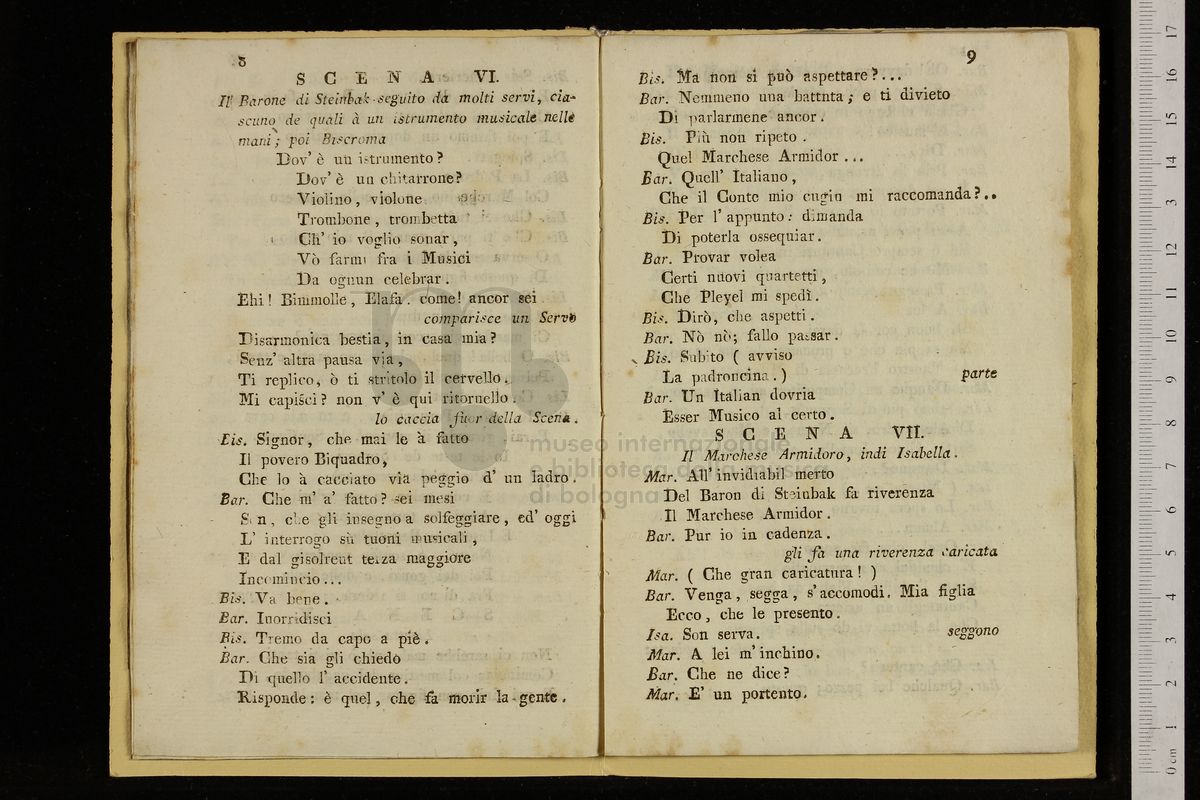 8
SCENA VI.
Il Barone di Steinbak seguito da molti servi, cia-
scuno de quali à un istrumento musicale nelle
mani; poi Biscroma
Dov' è un istrumento?
Dov' è un chitarrone?
Violino, violone
Trombone, trombetta
Ch' io voglio sonar,
Vò farmi fra i Musici
Da ognun celebrar.
Ehi! Bimmolle, Elafa. come! ancor sei
comparisce un Servo
Disarmonica bestia, in casa mia?
Senz' altra pausa via,
Ti replico, ò ti stritolo il cervello.
Mi capisci? non v' è qui ritornello.
lo caccia fuor della Scena.
Bis. Signor, che mai le à fatto
Il povero Biquadro,
Che lo à cacciato via peggio d' un ladro.
Bar. Che m' a' fatto? sei mesi
Son, che gli insegno a solfeggiare, ed' oggi
L' interrogo sù tuoni musicali,
E dal gisolreut terza maggiore
Incomincio...
Bis. Va bene.
Bar. Inorridisci
Bis. Tremo da capo a piè.
Bar. Che sia gli chiedo
Di quello l' accidente.
Risponde: è quel, che fa morir la gente.
9
Bis. Ma non si può aspettare?...
Bar. Nemmeno una battnta; e ti divieto
Di parlarmene ancor.
Bis. Più non ripeto.
Quel Marchese Armidor...
Bar. Quell' Italiano,
Che il Conte mio cugin mi raccomanda?..
Bis. Per l' appunto: dimanda
Di poterla ossequiar.
Bar. Provar volea
Certi nuovi quartetti,
Che Pleyel mi spedì.
Bis. Dirò, che aspetti.
Bar. Nò nò; fallo passar.
Bis. Subito ( avviso
La padroncina. ) parte
Bar. Un Italian dovria
Esser Musico al certo.
SCENA VII.
Il Marchese Armidoro, indi Isabella.
Mar. All' invidiabil merto
Del Baron di Steinbak fa riverenza
Il Marchese Armidor.
Bar. Pur io in cadenza.
gli fa una riverenza caricata
Mar. ( Che gran caricatura! )
Bar. Venga, segga, s' accomodi. Mia figlia
Ecco, che le presento.
Isa. Son serva. seggono
Mar. A lei m' inchino.
Bar. Che ne dice?
Mar. E' un portento.
museo internazionale
e biblioteca della musica
di bologna
0 cm 1 2 3 4 5 6 7 8 9 10 11 12 13 14 15 16 17